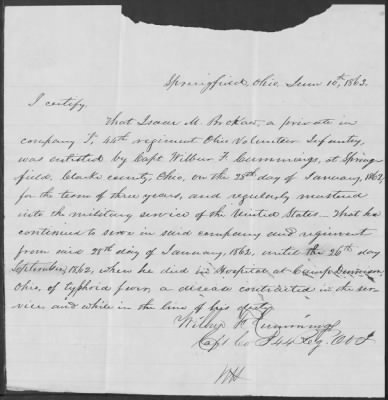 Springfield, Ohio, June 10th, 1863.
I certify,
That Isaac M. a private in
company F, 44th regiment Ohio Volunteer Infantry,
was enlisted by Capt Wilbur F. Cummings, at Spring-
field, Clarke county, Ohio, on the 28th day of January, 1862,
for the term of three years, and regularly mustered
into the military service of the United States. That he
continued to serve in said company and regiment
from said 28th day of January, 1862, until the 26th day
September, 1862, when he died in Hospital at Camp Dennison,
Ohio, of typhoid fever, a disease contracted in the ser-
vice and while in the line of his duty.
Wilbur F. Cummings
Capt Co F 44 Reg. O V I